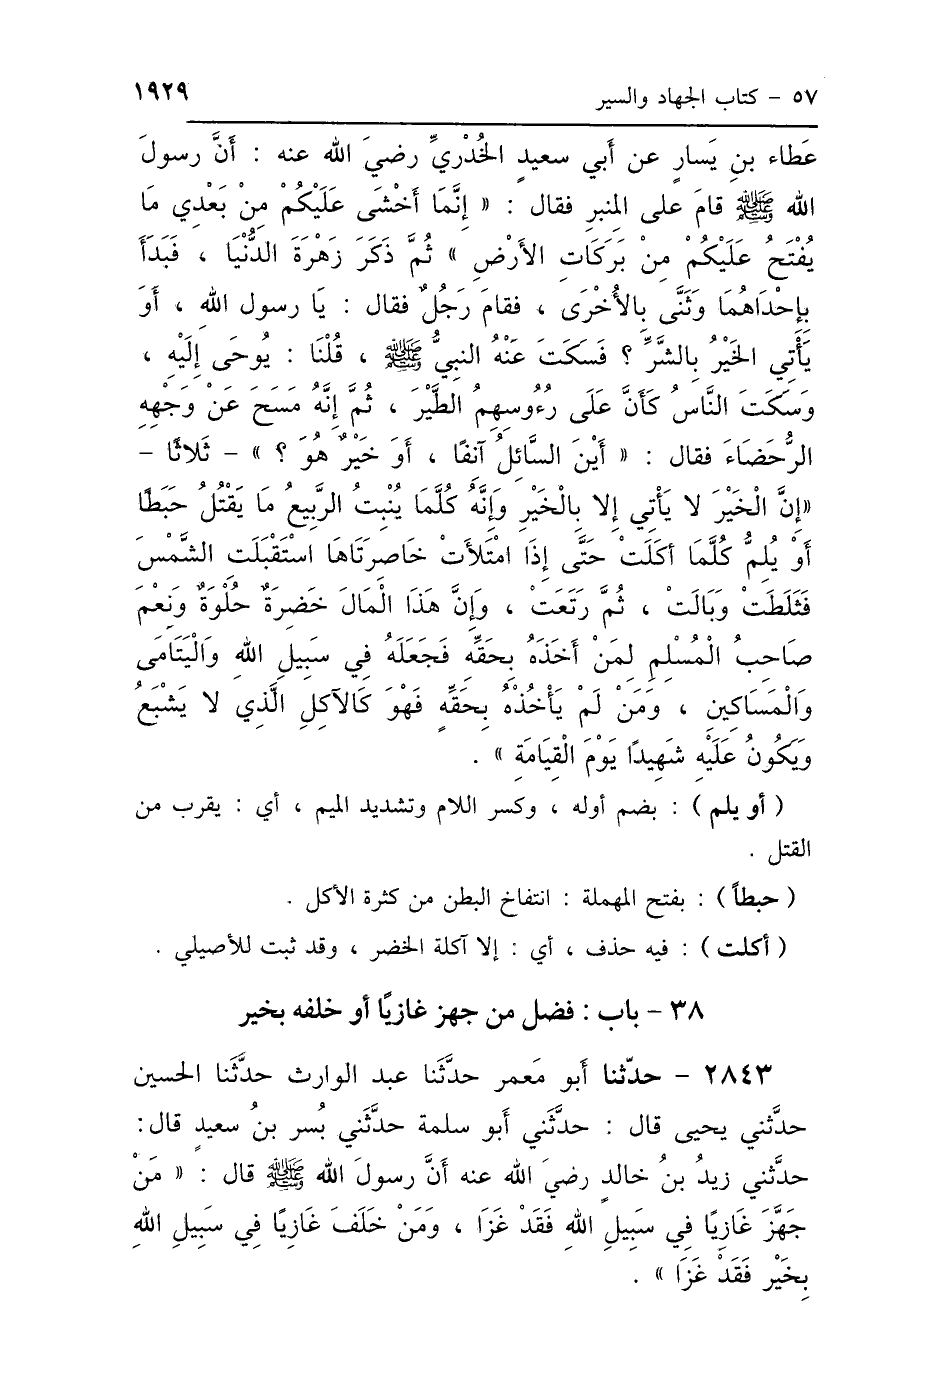 ٥٧ - كتاب الجهاد والسير ١٩٢٩
عَطاء بنِ يَسارٍ عن أبي سعيدٍ الخُدْريِّ رضيَ الله عنه : أنَّ رسولَ
الله ﷺ قامَ على المِنبرِ فقال : « إنَّمَا أَخْشَى عَلَيْكُمْ مِنْ بَعْدِي مَا
يُفْتَحُ عَلَيْكُمْ مِنْ بَرَكَاتِ الأَرْضِ » ثُمَّ ذَكَرَ زَهْرَةَ الدُّنْيَا ، فَبَدَأَ
بِإحْدَاهُمَا وَثَنَّى بِالأُخْرَى ، فقامَ رَجُلٌ فقال : يَا رسول اللهِ ، أَوَ
يَأْتِي الخَيْرُ بِالشَّرِّ ؟ فَسَكَتَ عَنْهُ النبيُّ ﷺ ، قُلْنَا : يُوحَى إِلَيْهِ ،
وَسَكَتَ النَّاسُ كَأَنَّ عَلَى رُءُوسِهِمُ الطَّيْرَ ، ثُمَّ إنَّهُ مَسَحَ عَنْ وَجْهِهِ
الرُّحَضَاءَ فقال : « أَيْنَ السَّائِلُ آنفًا ، أَوَ خَيْرٌ هُوَ ؟ » - ثَلاثًا -
«إنَّ الْخَيْرَ لا يَأْتِي إلا بِالْخَيْرِ وَإِنَّهُ كُلَّمَا يُنْبِتُ الرَّبِيعُ مَا يَقْتُلُ حَبَطًا
أَوْ يُلِمُّ كُلَّمَا أكَلَتْ حَتَّى إِذَا امْتَلأَتْ خَاصِرَتَاهَا اسْتَقْبَلَتِ الشَّمْسَ
فَثَلَطَتْ وَبَالَتْ ، ثُمَّ رَتَعَتْ ، وَإِنَّ هَذَا الْمَالَ خَضِرَةٌ حُلْوَةٌ وَنِعْمَ
صَاحِبُ الْمُسْلِمِ لِمَنْ أَخَذَهُ بِحَقِّهِ فَجَعَلَهُ فِي سَبِيلِ اللهِ وَالْيَتَامَى
وَالْمَسَاكِينِ ، وَمَنْ لَمْ يَأْخُذْهُ بِحَقِّهِ فَهْوَ كَالآكِلِ الَّذِي لا يَشْبَعُ
وَيَكُونُ عَلَيْهِ شَهِيدًا يَوْمَ الْقِيَامَةِ » .
( أو يلم ) : بضم أوله ، وكسر اللام وتشديد الميم ، أي : يقرب من
القتل .
( حبطاً ) : بفتح المهملة : انتفاخ البطن من كثرة الأكل .
( أكلت ) : فيه حذف ، أي : إلا آكلة الخضر ، وقد ثبت للأصيلي .
٣٨ - باب : فضل من جهز غازيًا أو خلفه بخير
٢٨٤٣ - حدّثنا أبو مَعمر حدَّثَنا عبد الوارث حدَّثَنا الحسين
حدَّثني يحيى قال : حدَّثَني أبو سلمة حدَّثَني بُسر بنُ سعيدٍ قال:
حدثَّني زيدُ بنُ خالدٍ رضيَ الله عنه أنَّ رسولَ الله ﷺ قال : « مَنْ
جَهَّزَ غَازِيًا فِي سَبِيلِ اللهِ فَقَدْ غَزَا ، وَمَنْ خَلَفَ غَازِيًا فِي سَبِيلِ اللهِ
بِخَيْرٍ فَقَدْ غَزَا » .